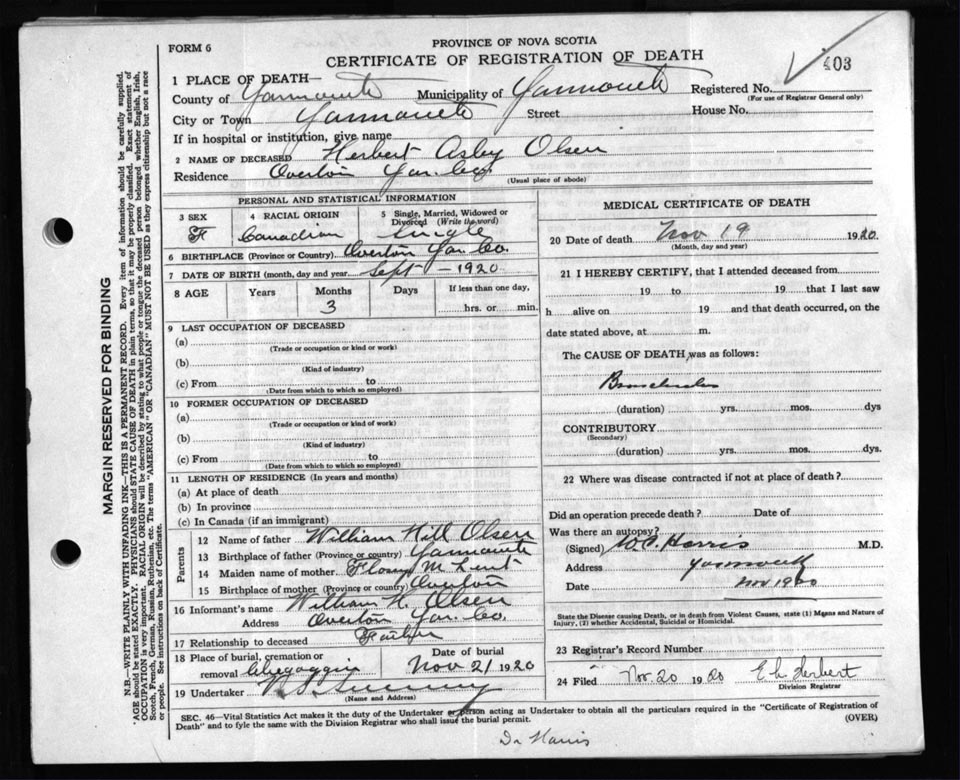 FORM 6
PROVINCE OF NOVA SCOTIA
CERTIFICATE OF REGISTRATION OF DEATH
403
1 PLACE OF DEATH—
County of Yarmouth Municipality of Yarmouth Registered No.
(For use of Registrar General only)
City or Town Yarmouth Street House No.
If in hospital or institution, give name
2 NAME OF DECEASED Herbert Asby Olsen
Residence Overton Yar. Co.
(Usual place of abode)
PERSONAL AND STATISTICAL INFORMATION
3 SEX
4 RACIAL ORIGIN Canadian
5 Single, Married, Widowed or Divorced (Write the word) Single
6 BIRTHPLACE (Province or Country) Overton Yar. Co.
7 DATE OF BIRTH (month, day and year) Sept – 1920
8 AGE Years Months Days If less than one day,
3 hrs. or min.
9 LAST OCCUPATION OF DECEASED
(a)
(Trade or occupation or kind or work)
(b)
(Kind of industry)
(c) From to
(Date from which to which so employed)
10 FORMER OCCUPATION OF DECEASED
(a)
(Trade or occupation or kind of work)
(b)
(Kind of industry)
(c) From to
(Date from which to which so employed)
11 LENGTH OF RESIDENCE (In years and months)
(a) At place of death
(b) In province
(c) In Canada (if an immigrant)
Parents
12 Name of father William Hill Olsen
13 Birthplace of father (Province or country) Yarmouth
14 Maiden name of mother M
15 Birthplace of mother (Province or country) Overton
16 Informant's name William H. Olsen
Address Overton Yar. Co.
17 Relationship to deceased Father
18 Place of burial, cremation or removal Chegoggin
Date of burial Nov 21 1920
19 Undertaker
(Name and Address)
MEDICAL CERTIFICATE OF DEATH
20 Date of death Nov 19 1920
(Month, day and year)
21 I HEREBY CERTIFY, that I attended deceased from
19 to 19 that I last saw
h alive on 19 and that death occurred, on the
date stated above, at m.
The CAUSE OF DEATH, was as follows:
(duration) yrs. mos. dys
CONTRIBUTORY
(Secondary)
(duration) yrs. mos. dys.
22 Where was disease contracted if not at place of death?
Did an operation precede death? Date of
Was there an autopsy?
(Signed) Harris M.D.
Address Yarmouth
Date Nov 1920
State the Disease causing Death, or in death from Violent Causes, state (1) Means and Nature of
Injury, (2) whether Accidental, Suicidal or Homicidal.
23 Registrar's Record Number
24 Filed Nov. 20 1920 Herbert
Division Registrar
SEC. 46—Vital Statistics Act makes it the duty of the Undertaker or person acting as Undertaker to obtain all the particulars required in the "Certificate of Registration of
Death" and to fyle the same with the Division Registrar who shall issue the burial permit.
(OVER)
Dr Harris
MARGIN RESERVED FOR BINDING
N.B.—WRITE PLAINLY WITH UNFADING INK—THIS IS A PERMANENT RECORD. Every item of information should be carefully supplied.
AGE should be stated EXACTLY. PHYSICIANS should STATE CAUSE OF DEATH in plain terms, so that it may be properly classified. Exact statement of
OCCUPATION is very important. RACIAL ORIGIN will be described by stating to what people or tongue the deceased person belonged whether English, Irish,
Scotch, French, German, Russian, Ruthenian, etc. The terms "AMERICAN" OR "CANADIAN" MUST NOT BE USED as they express citizenship but not a race
or people. See instructions on back of Certificate.